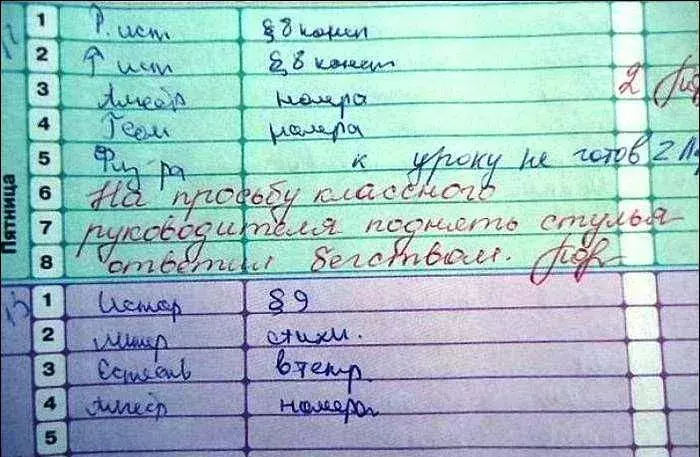 1 Р. ист § 8 консп
2 Р ист § 8 консп
3 Алгебр номера 2
4 Геом номера
5 Физ ра к уроку не готов 2
Пятница
6 На просьбу классного
7 руководителя поднять стулья
8 ответил бегством.
13
1 Истор § 9
2 Литер стихи.
3 Естеств в тетр.
4 Алгебр номера
5